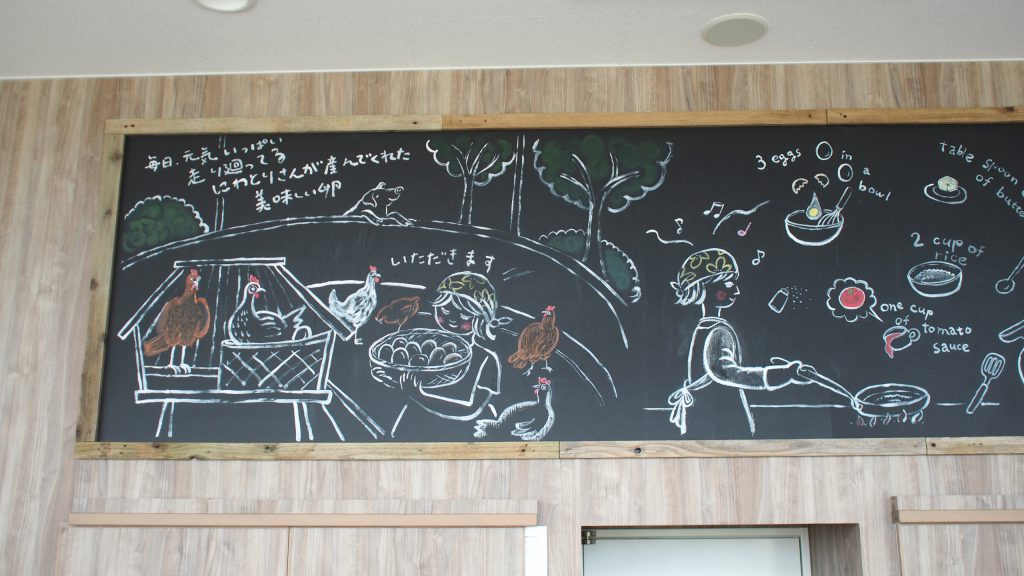 毎日、元気いっぱい
走り廻ってる
にわとりさんが産んでくれた
美味しい卵
いただきます
3 eggs in
a
bowl
table spoon
of butter
2 cup of
rice
one cup
of tomato
sauce